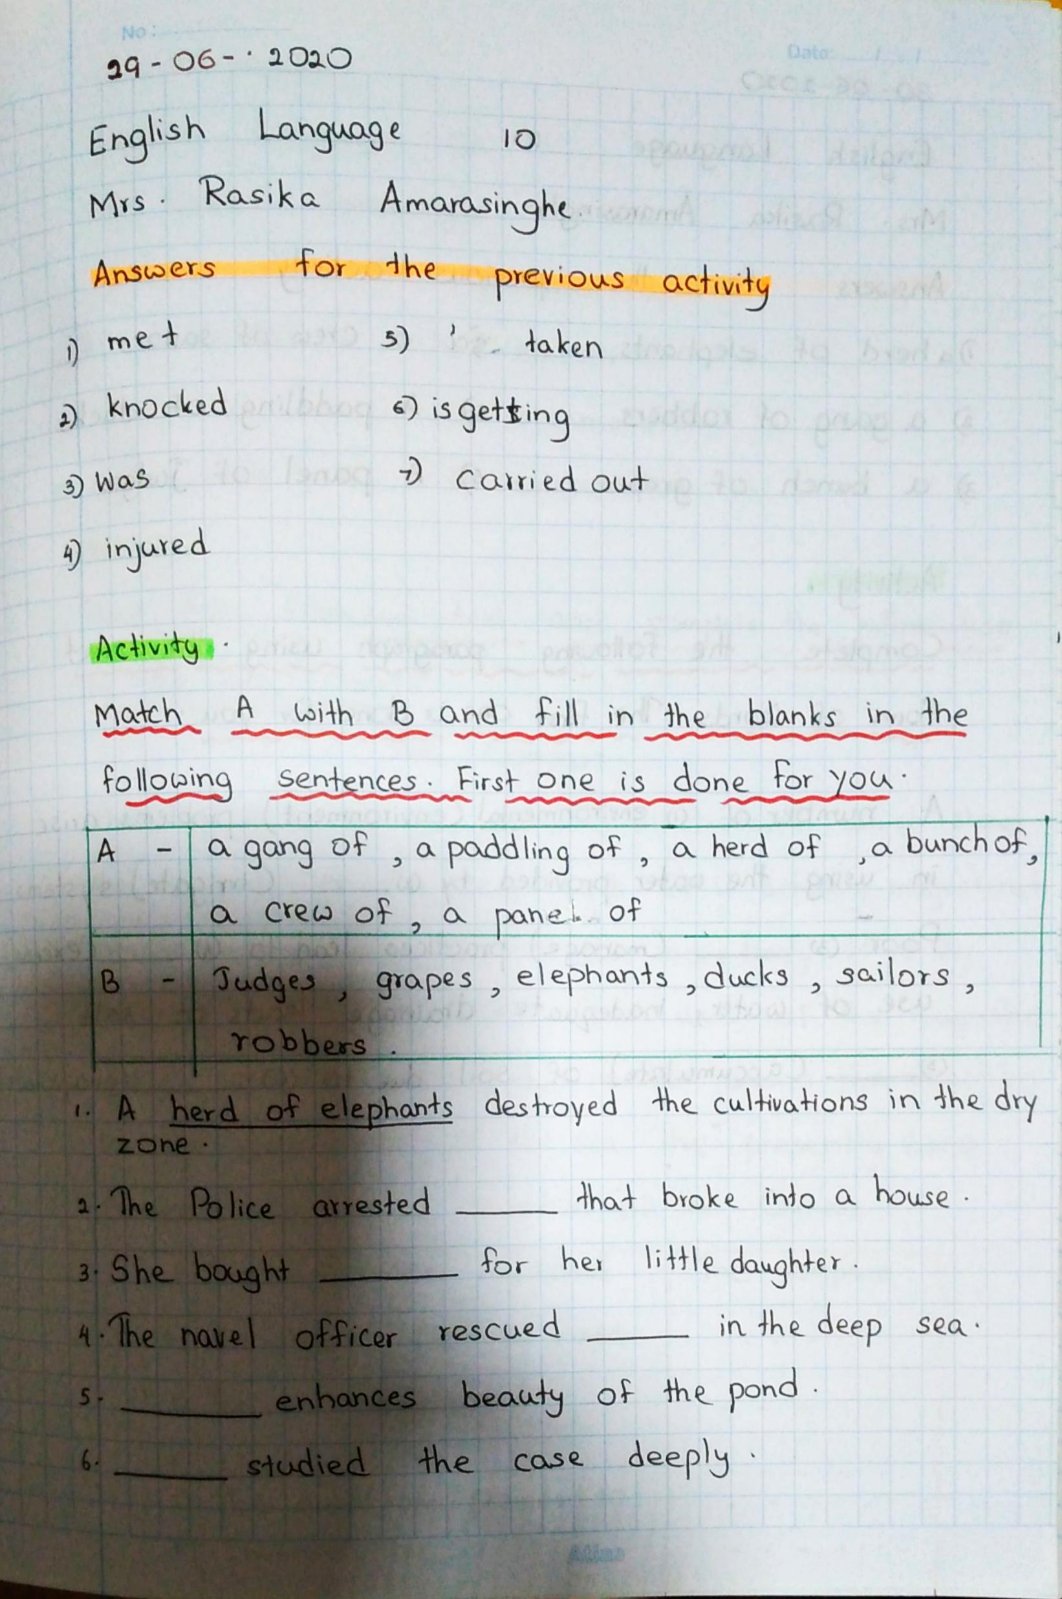 No:
Date:
29-06-2020
English Language 10
Mrs. Rasika Amarasinghe
Answers for the previous activity
1) met 5) taken
2) knocked 6) is getting
3) was 7) carried out
4) injured
Activity.
Match A with B and fill in the blanks in the
following sentences. First one is done for you.
A - a gang of, a paddling of, a herd of, a bunch of,
a crew of, a panel of
B - Judges, grapes, elephants, ducks, sailors,
robbers.
1. A herd of elephants destroyed the cultivations in the dry
zone.
2. The Police arrested ______ that broke into a house.
3. She bought ______ for her little daughter.
4. The navel officer rescued ______ in the deep sea.
5. ______ enhances beauty of the pond.
6. ______ studied the case deeply.
Atlas